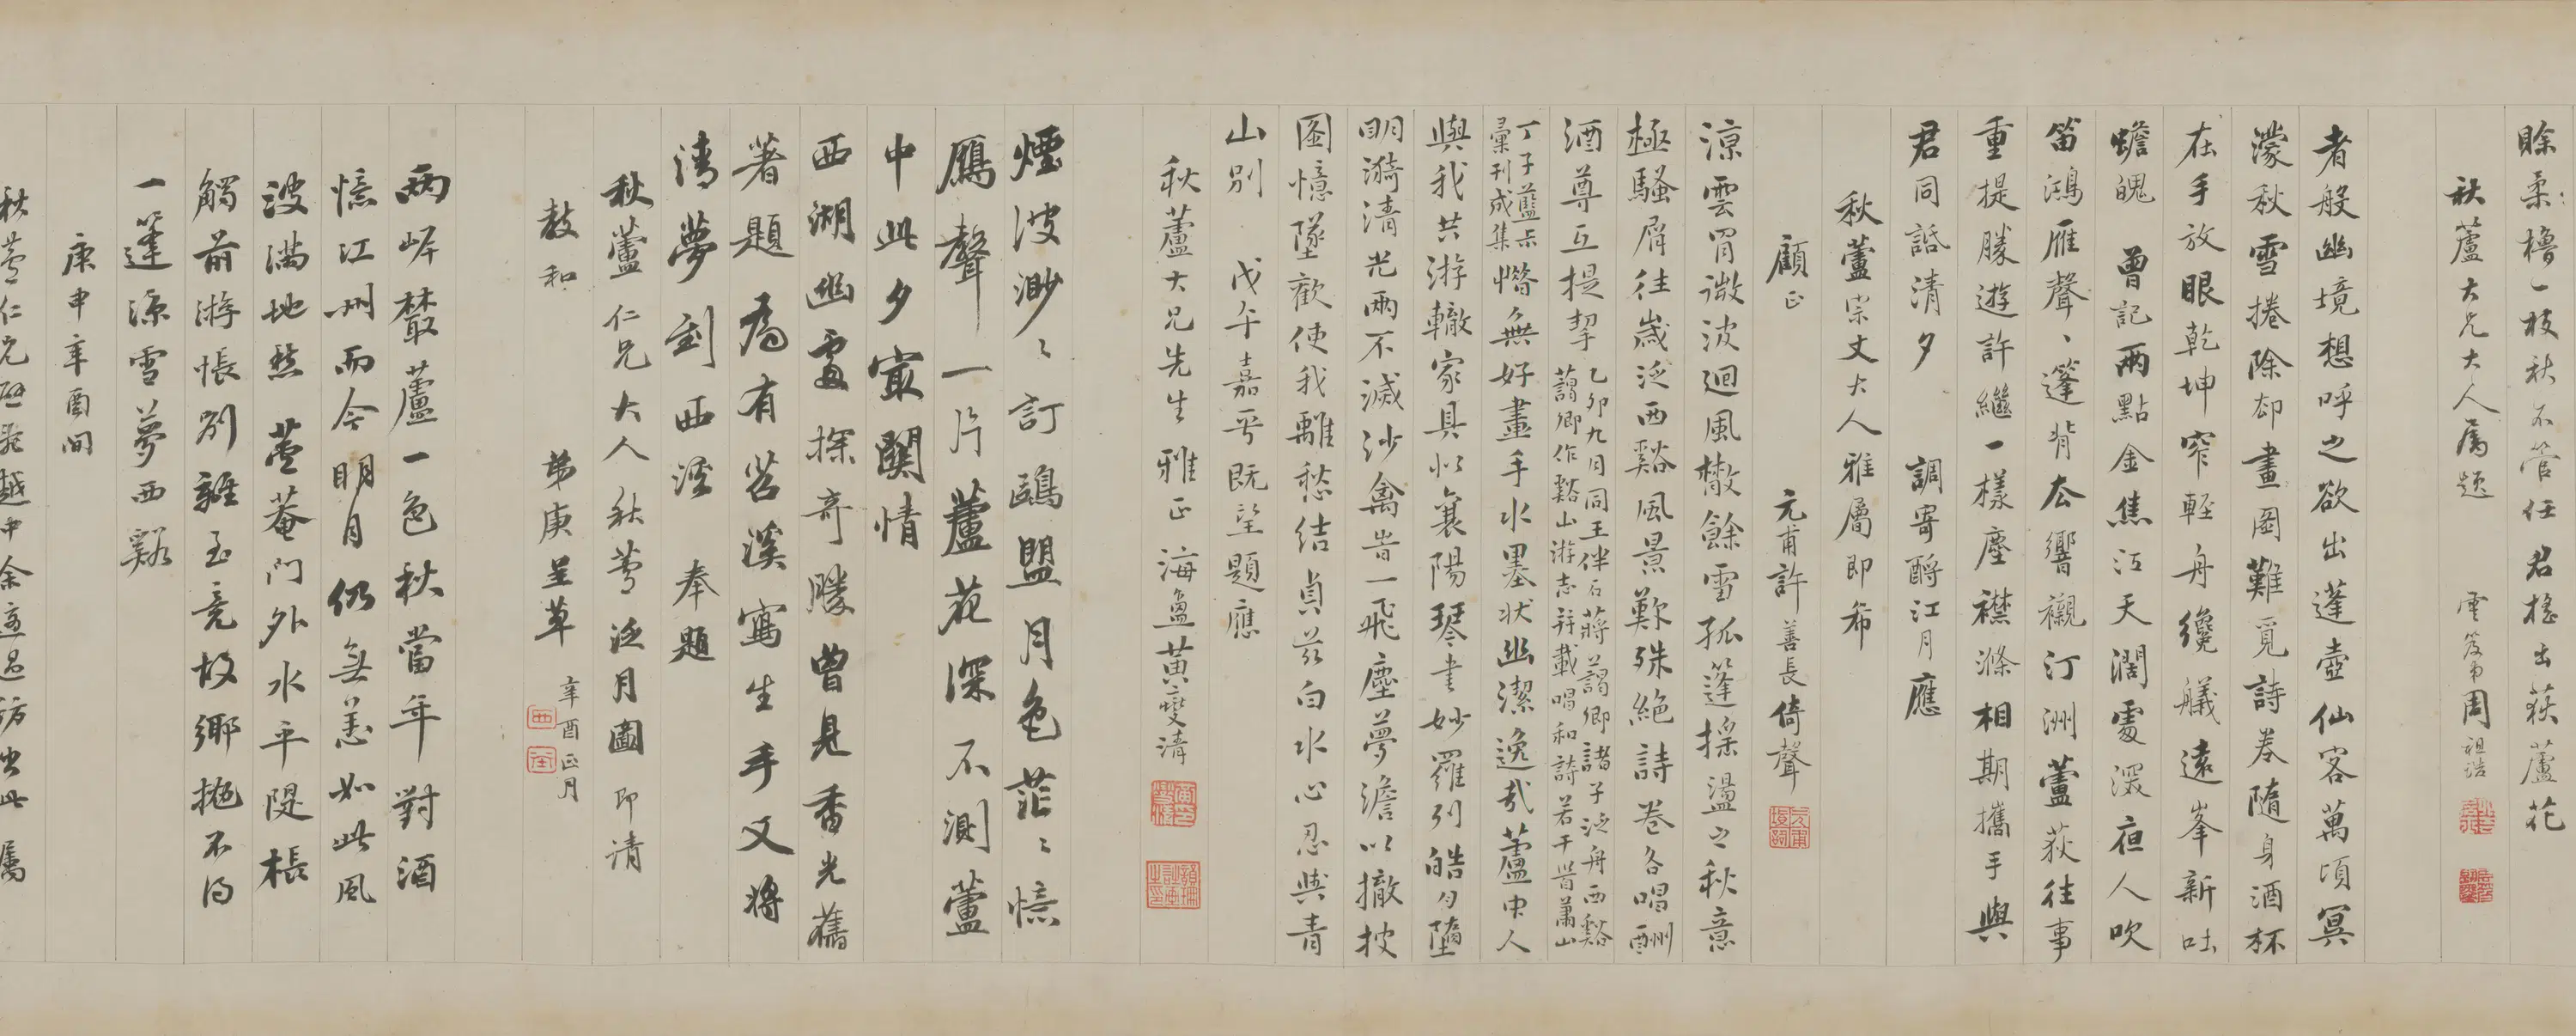 賒柔櫓一枝秋不管任君搖出荻蘆花
秋蘆大兄大人屬題
周祖
者般幽境想呼之欲出蓬壺仙客萬頃冥
濛秋雪捲除却畫圖難覓詩卷隨身酒杯
在手放眼乾坤窄輕舟纔艤遠峯新吐
蟾魄 曾記兩點金焦江天闊處深夜人吹
笛鴻雁聲〻篷背去響襯汀洲蘆荻往事
重提勝遊許繼一樣塵襟滌相期攜手與
君同話清夕 調寄酹江月應
秋蘆宗丈大人雅屬即希
顧正 元甫許善長倚聲
涼雲胃微波迴風撒餘雪孤篷搖盪之秋意
極騷屑往歲泛西谿風景歎殊絕詩卷各唱酬
酒尊互提挈
乙卯九月同王伴石蔣藹卿諸子泛舟西谿
藹卿作谿山游志并載唱和詩若干皆蕭山
丁子藍
彙刊成集
惜無好畫手水墨狀幽潔逸哉蘆中人
與我共游轍家具似襄陽琴書妙羅列皓月墮
明漪清光兩不滅沙禽皆一飛塵夢澹以撤披
圖憶墜歡使我離愁結貞茲白水心忍與青
山別 戊午嘉平既望題應
秋蘆大兄先生雅正 海鹽黃燮清
煙波渺〻訂鷗盟月色茫〻憶
鴈聲一片蘆花深不測蘆
中此夕最關情
西湖幽處探奇勝曾見香光舊
著題為有苕溪寫生手又將
清夢到西溪 奉題
秋蘆仁兄大人秋蘆泛月圖即請
教和 弟庚呈草
辛酉正月
兩岸叢蘆一色秋當年對酒
憶江州而今明月仍無恙如此風
波滿地愁 蘆菴門外水平隄棖
觸前游悵別離至竟故鄉拋不得
一篷涼雪夢西谿
庚申辛酉間